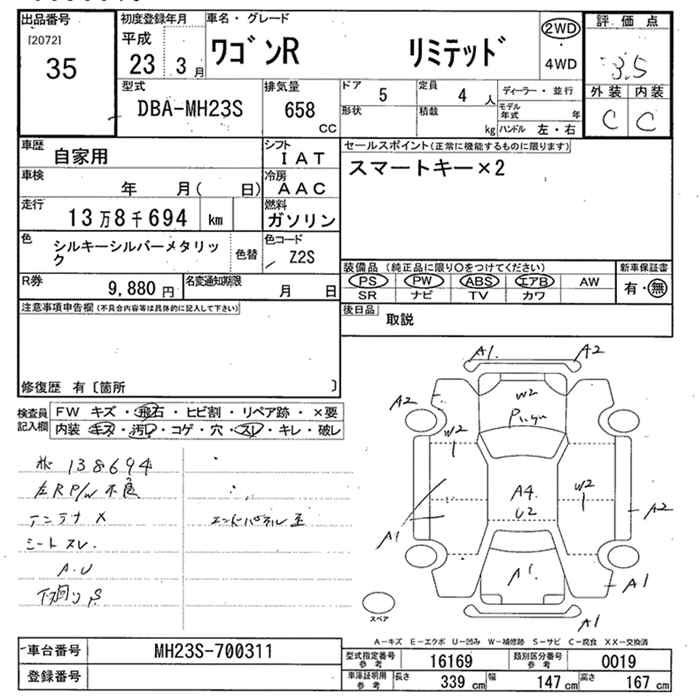 出品番号
[2072]
35
初度登録年月
平成
23 3 月
車名・グレード
ワゴンR リミテッド
2WD
・
4WD
評価点
3.5
外装 内装
C C
型式
DBA-MH23S
排気量
658
CC
ドア 5
定員 4 人
ディーラー・並行
形状
積載 kg
モデル年式 年
ハンドル 左・右
車歴
自家用
シフト
IAT
セールスポイント(正常に機能するものに限ります)
スマートキー×2
車検
年 月( 日)
冷房
AAC
走行
13万8千694 km
燃料
ガソリン
色
シルキーシルバーメタリック
色替
色コード
Z2S
R券
9,880 円
名変通知期限
月 日
装備品(純正品に限り〇をつけてください)
新車保証書
PS PW ABS エアB AW
SR ナビ TV カワ
有・無
注意事項申告欄(不具合内容等は具体的に記入して下さい)
後日品
取説
修復歴 有〔箇所 〕
検査員
記入欄
FW キズ・飛石・ヒビ割・リペア跡・×要
内装 キズ・汚レ・コゲ・穴・スレ・キレ・破レ
138694
左R P/W 不良
アンテナ X
シートスレ.
A.U
下回りS
エンドパネル
A1. A2
A2 W2
W2
1
A4
U2
W2
1
A2
A1
A1
A1
A1
スペア
A-キズ E-エクボ U-凹み W-補修跡 S-サビ C-腐食 XX-交換済
車台番号
MH23S-700311
登録番号
型式指定番号
参考
16169
類別区分番号
参考
0019
車庫証明用
参考
長さ 339 cm
幅 147 cm
高さ 167 cm